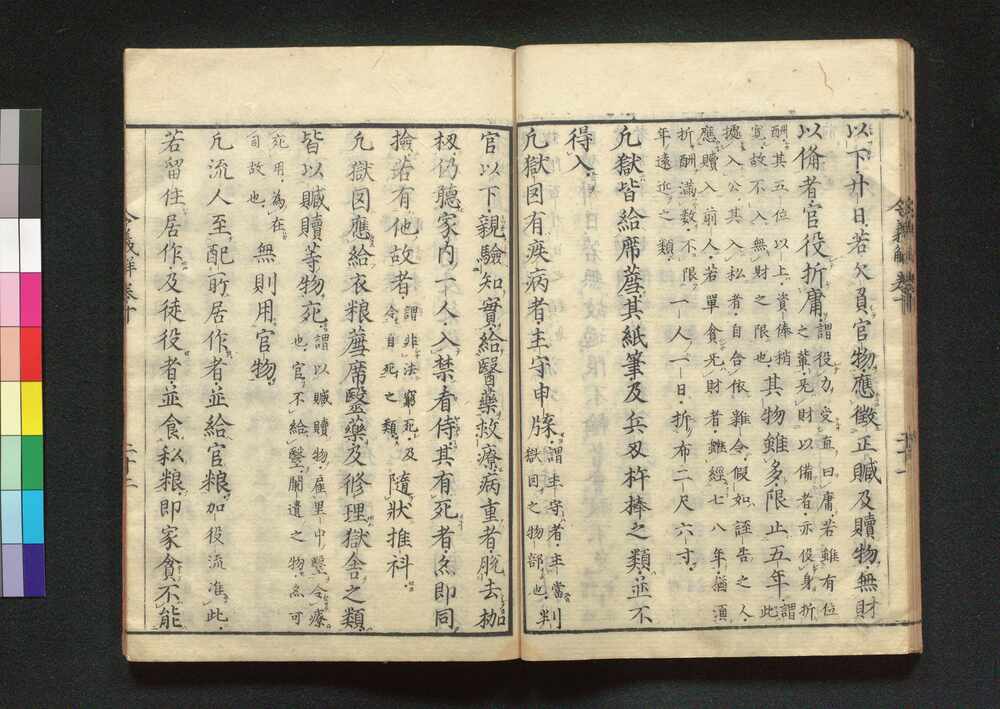 以下廾日若欠負官物應徴正贓及贖物無財
以備者官役折庸謂役力受直曰庸若雖有位
之輩无財以備者亦役身折
酬其五位以上資俸稍
寛故不入無財之限也其物雖多限止五年謂
此
據入公其入私者自合依雜令假如誣告之人
應贖入前人若單貧无財者雖經七八年猶須
折酬滿數不限
年遠近之類一人一日折布二尺六寸
凢獄皆給席薦其紙筆及兵刄杵捧之類並不
得入
凢獄囚有疾病者主守申牒謂主守者主當
獄囚之物部也判
官以下親驗知實給醫藥救療病重者脱去枷
杻仍聽家內一人入禁看侍其有死者亦即同
檢若有他故者謂非法窮死及
令自死之類隨狀推科
凢獄囚應給衣粮薦席醫藥及修理獄舍之類
皆以贓贖等物充謂以贓贖物雇里中醫令療
也官不給醫闌遺之物亦可
充用為在
自故也無則用官物
凢流人至配所居作者並給官粮加役流准此
若留住居作及徒役者並食私粮即家貧不能
令義解卷十
二十二